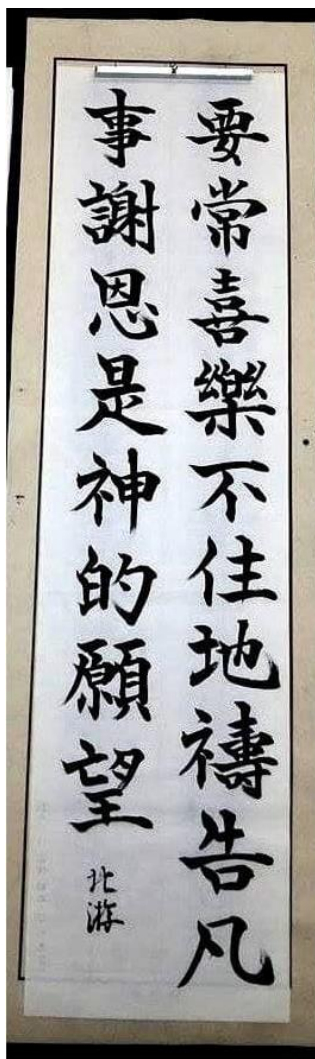 要常喜樂不住地禱告凡
事謝恩是神的願望
北游